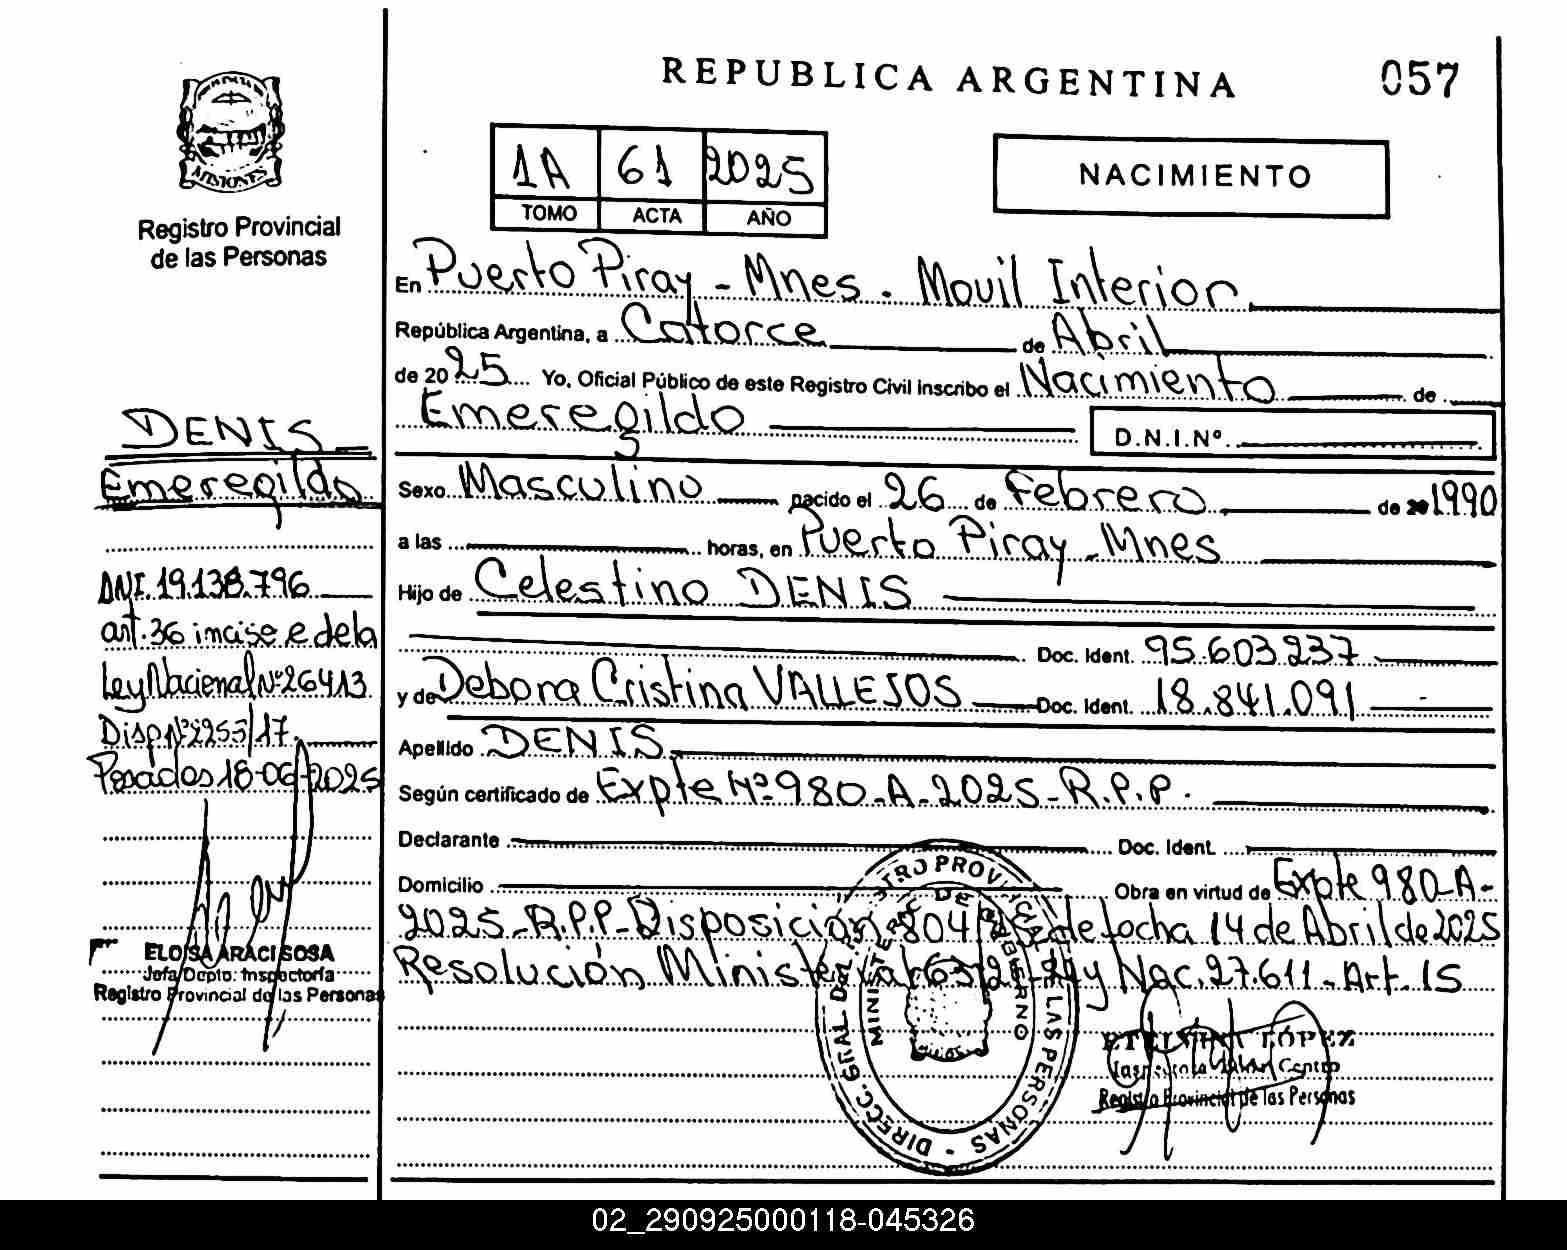 REPUBLICA ARGENTINA
057
MISIONES
Registro Provincial
de las Personas
1A 61 2025
TOMO ACTA AÑO
NACIMIENTO
En Puerto Piray - Mnes. Movil Interior
República Argentina, a Catorce de Abril
de 2025 Yo, Oficial Público de este Registro Civil inscribo el Nacimiento de
Emeregildo
D.N.I.Nº
Sexo Masculino nacido el 26 de Febrero de 1990
a las horas, en Puerto Piray - Mnes
Hijo de Celestino DENIS
Doc. Ident. 95.603.237
y de Debora Cristina VALLEJOS Doc. Ident. 18.841.091
Apellido DENIS
Según certificado de Expte Nº 980-A-2025-R.P.P.
Declarante Doc. Ident.
Domicilio Obra en virtud de Expte 980-A-
2025-R.P.P-Disposición 804 de fecha 14 de Abril de 2025
Resolución Ministerial 632-Ley Nac. 27.611-Art. 15
DENIS
Emeregildo
DNI. 19.138.796
art. 36 inciso e de la
Ley Nacional Nº 26413
Disp Nº 2255/17.
Posadas 18-06-2025
ELOISA ARACI SOSA
Jefa Depto. Inspectoría
Registro Provincial de las Personas
DIRECC. GRAL DEL REGISTRO PROVINCIAL DE LAS PERSONAS
MINISTERIO DE GOBIERNO
ETELVINA LÓPEZ
Inspectora Centro
Registro Provincial de las Personas
02_290925000118-045326